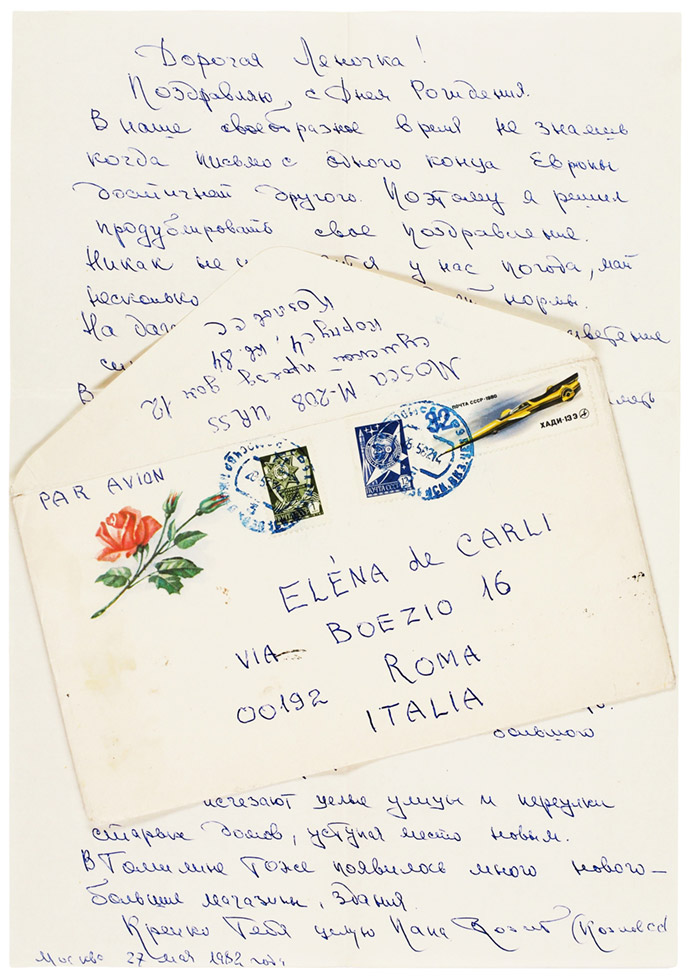 Дорогая Леночка!
Поздравляю, с Днем Рождения.
В наше своеобразное время не знаешь
когда письмо с одного конца Европы
достигнет другого. Поэтому я решил
продублировать свое поздравление.
Никак не у нас погода, май
несколько нормы.
На
В
MOSCA M-208 URSS
сумской проезд дом 12
корпус 4, кв. 84
Козлов С С
PAR AVION
ПОЧТА СССР · 1980
ХАДИ-13 Э
ELÉNA de CARLI
VIA BOEZIO 16
00192 ROMA
ITALIA
большого
исчезают целые улицы и переулки
старых домов, уступая место новым.
В Томилине Тоже появилось много нового –
большие магазины, здания.
Крепко Тебя целую Папа (Козлов
Москва 27 мая 1982 года